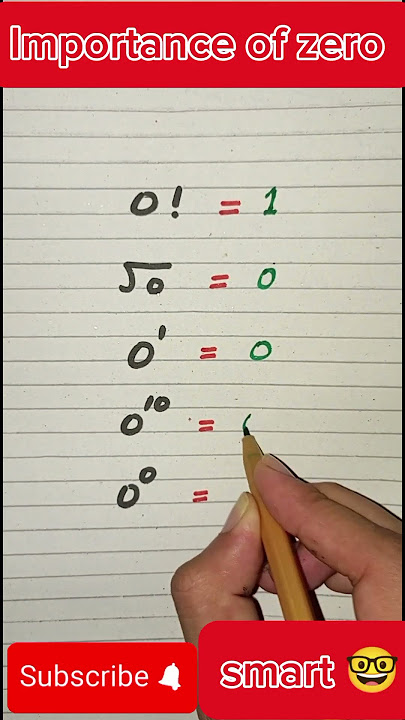 Importance of zero
0! = 1
√0 = 0
0¹ = 0
0¹⁰ =
0⁰ =
Subscribe
smart 🤓